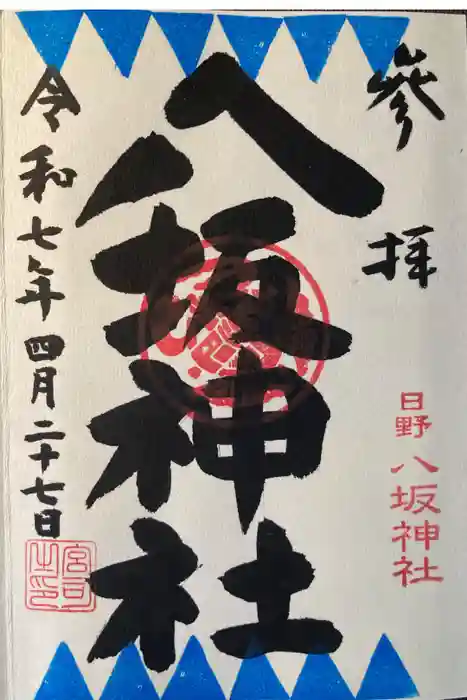 參拝
日野 八坂神社
八坂神社
令和七年四月二十七日
宮司之印